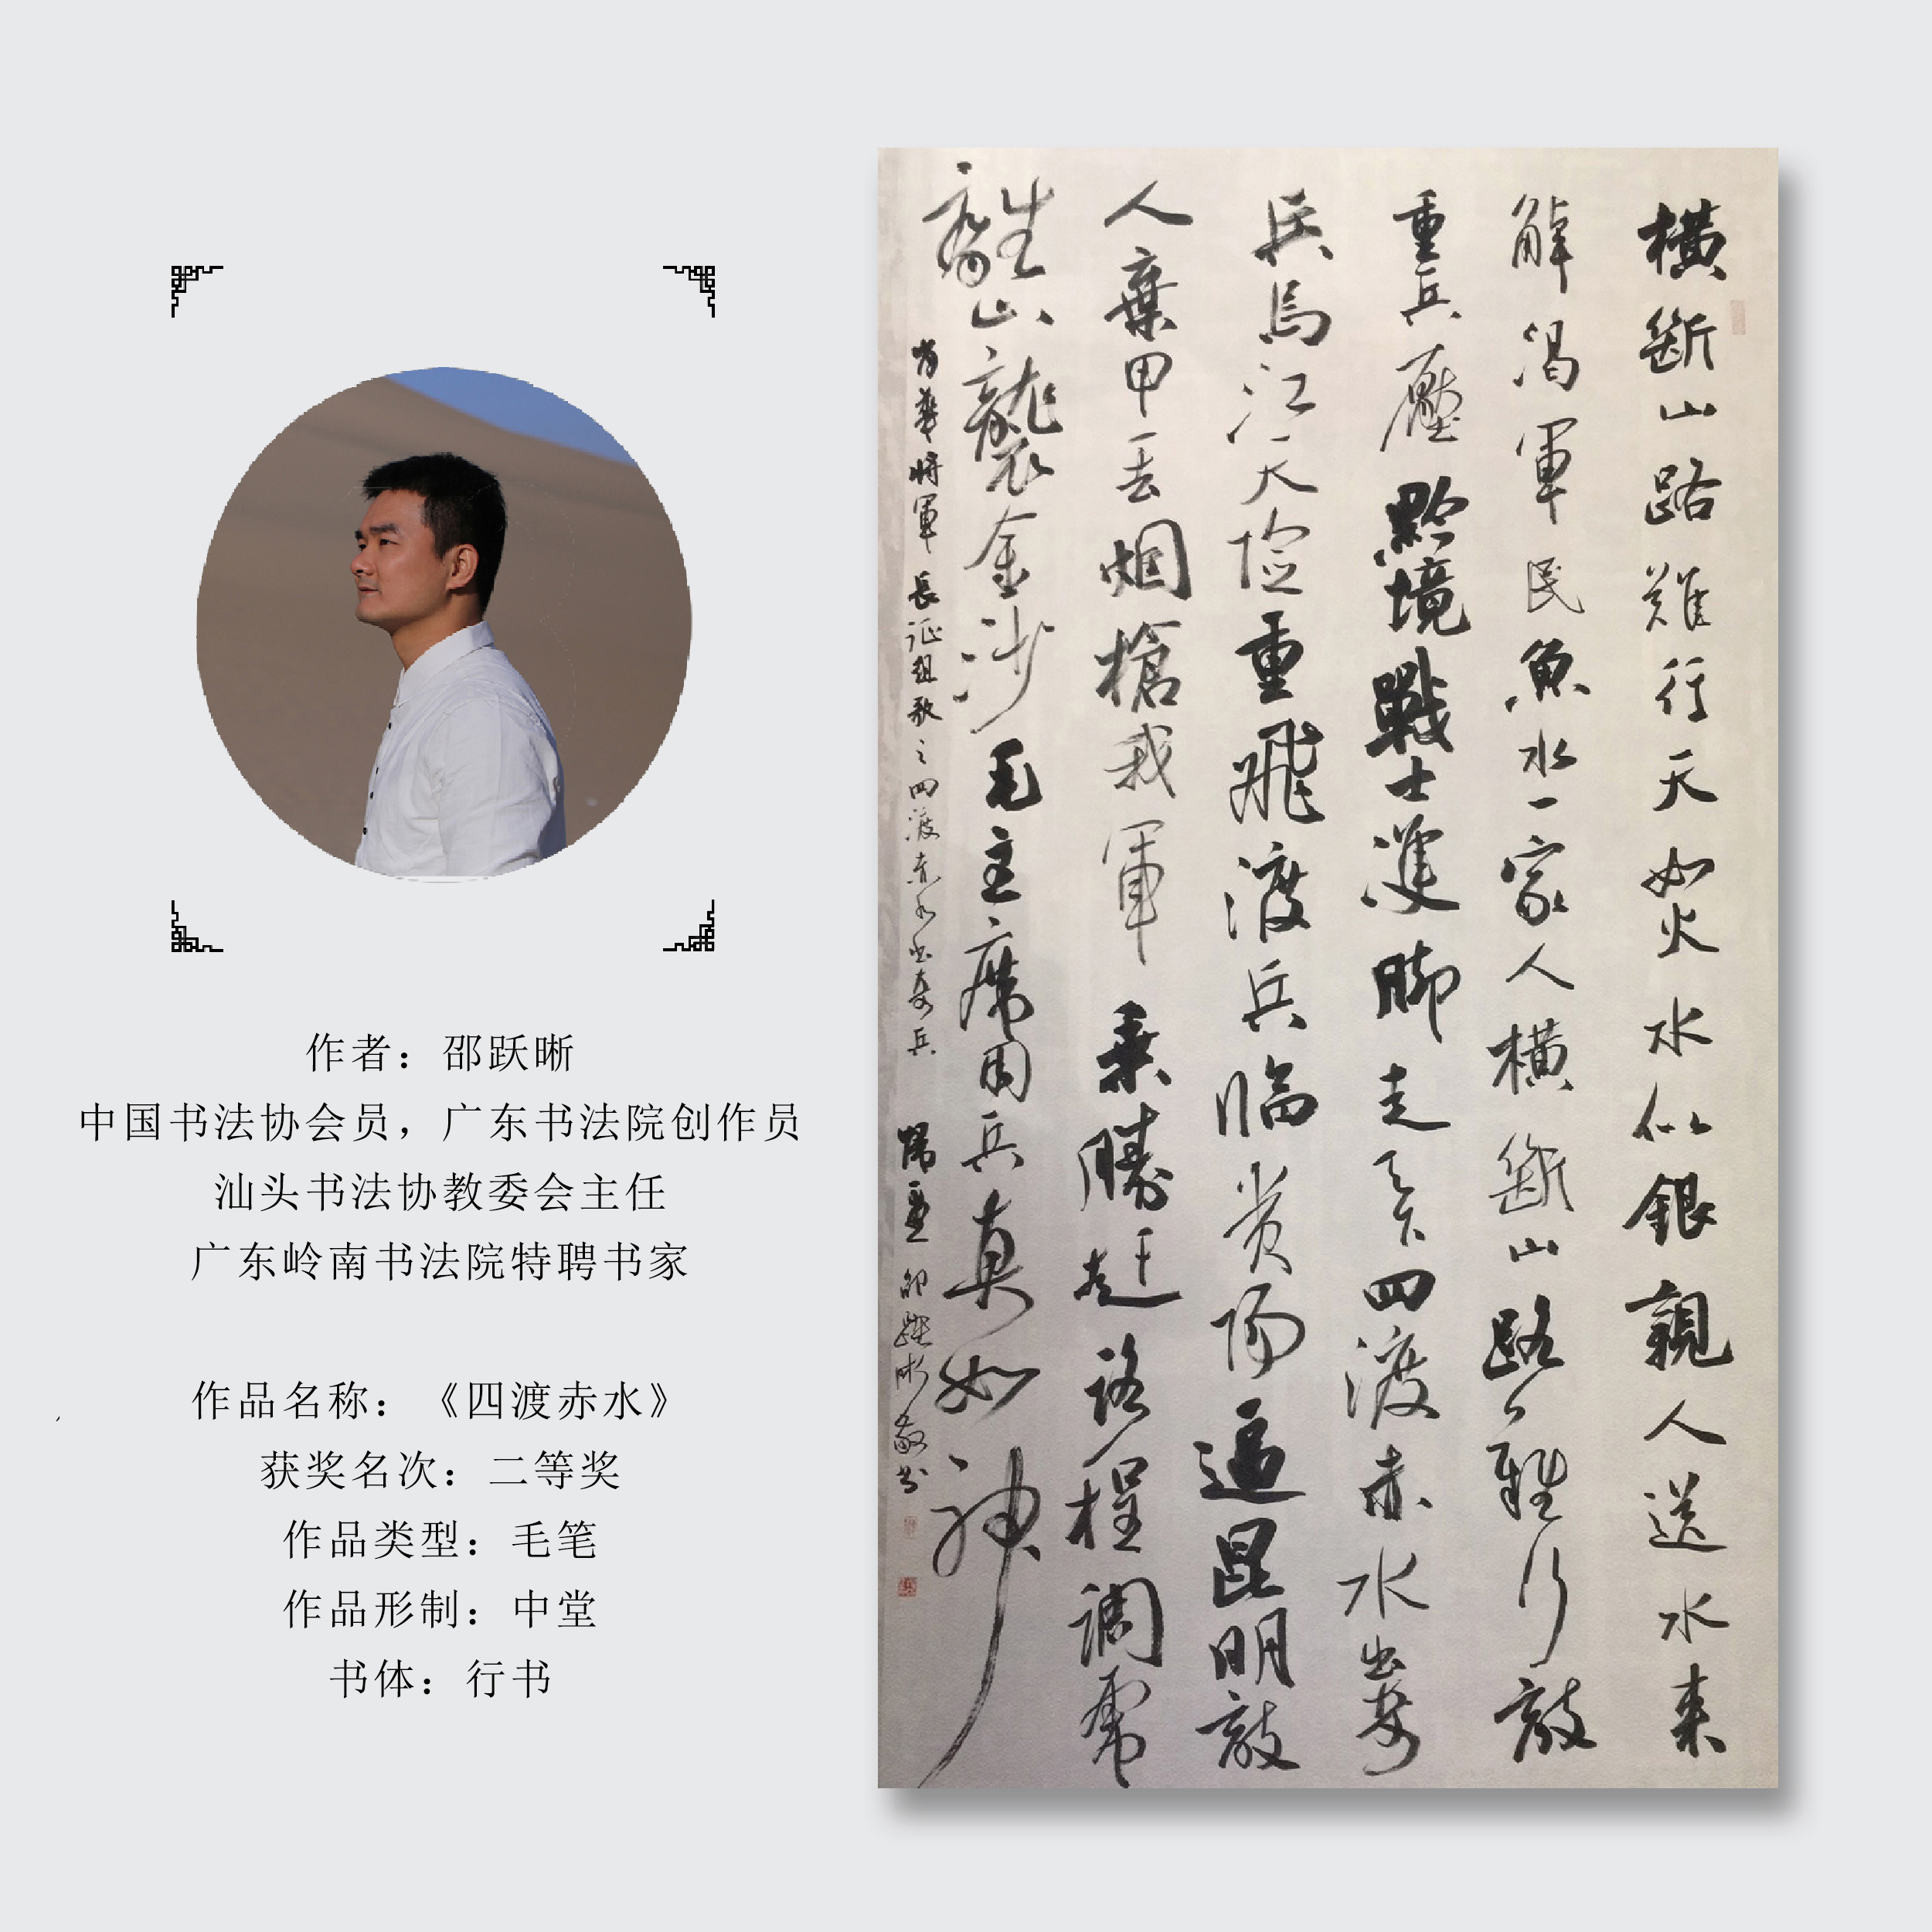 作者：邵跃晰
中国书法协会员，广东书法院创作员
汕头书法协教委会主任
广东岭南书法院特聘书家
作品名称：《四渡赤水》
获奖名次：二等奖
作品类型：毛笔
作品形制：中堂
书体：行书
橫斷山路難行天如火水似銀親人送水来
解渴軍民魚水一家人橫斷山路難行敵
重兵壓黔境戰士雙脚走天下四渡赤水出奇
兵烏江天险重飛渡兵临贵陽逼昆明敵
人棄甲丢烟槍我軍乘勝赶路程調虎
離山襲金沙毛主席用兵真如神
肖華將軍長征組歌之四渡赤水出奇兵 邵躍晰敬书